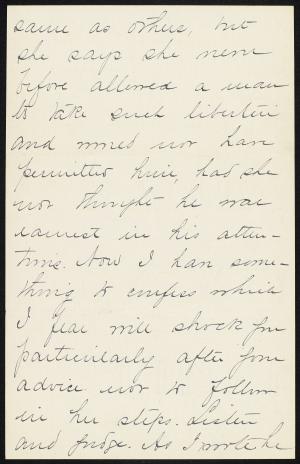 same as others, but
she says she never
before allowed a man
to take such liberties
and would not have
permitted him, had she
not thought he was
earnest in his atten-
tions. Now I have some-
thing to confess which
I fear will shock you
particularly after your
advice not to follow
in her steps. Listen
and judge. As I wrote he